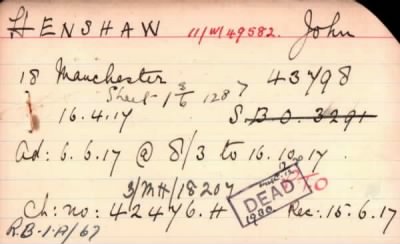 HENSHAW 11/W/49582. John
18 Manchester 43798
Sheet 1 3/6 1287
16.4.17 S.B.O. 3291
Ad: 6.6.17 @ 8/3 to 16.10.17
3/MH/18207
DEAD TO
1930
Ch: no: 42476.H Rec: 15.6.17
R.B-1-P/67